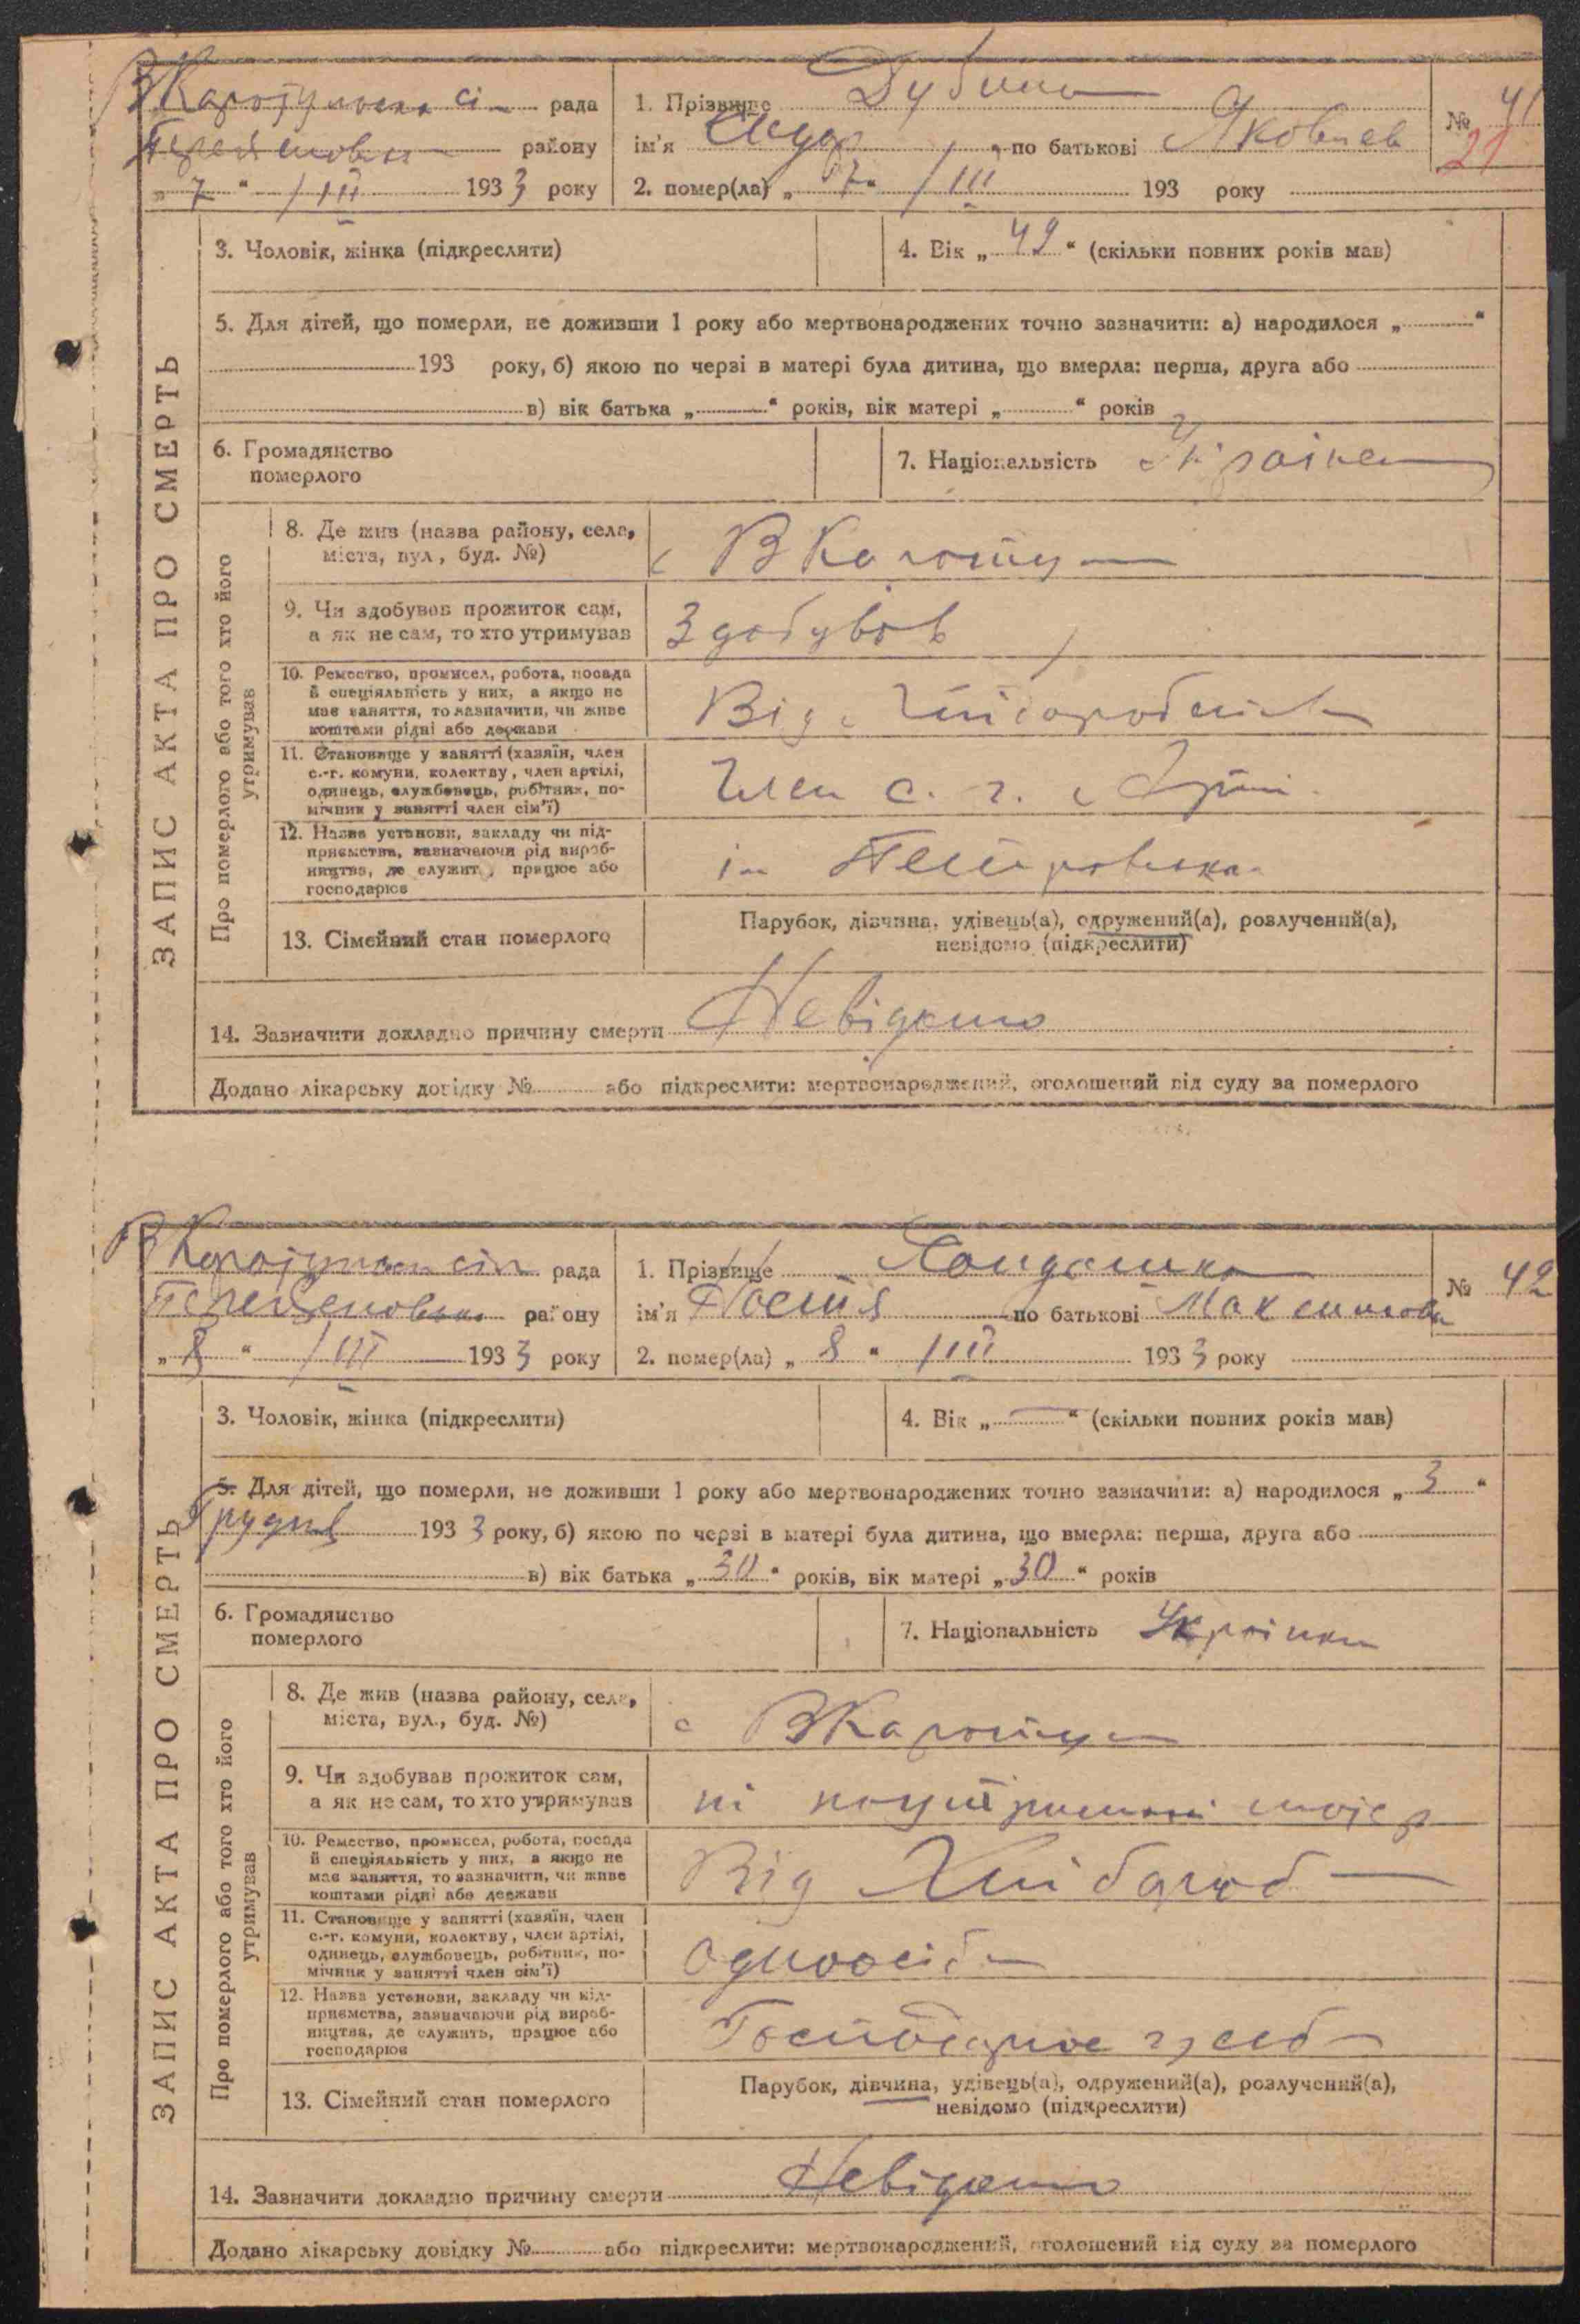 рада
району
„ 7 “ / III 1933 року
1. Прізвище Дубина
ім'я по батькові Яковлев
2. помер(ла) „ 7 “ / III 193 року
№ 41
21
ЗАПИС АКТА ПРО СМЕРТЬ
3. Чоловік, жінка (підкреслити)
4. Вік „ 42 “ (скільки повних років мав)
5. Для дітей, що померли, не доживши 1 року або мертвонароджених точно зазначити: а) народилося „ “
193 року, б) якою по черзі в матері була дитина, що вмерла: перша, друга або
в) вік батька „ “ років, вік матері „ “ років
6. Громадянство
померлого
7. Національність Украінец
Про померлого або того хто його
утримував
8. Де жив (назва району, села,
міста, вул., буд. №)
с В Каратул
9. Чи здобував прожиток сам,
а як не сам, то хто утримував
Здобував
10. Ремество, промисел, робота, посада
й спеціяльність у них, а якщо не
має заняття, то зазначити, чи живе
коштами рідні або держави
Від
11. Становище у занятті (хазяїн, член
с.-г. комуни, колектву, член артілі,
одинець, службовець, робітник, по-
мічник у занятті член сім'ї)
Член с. г. Арті
12. Назва установи, закладу чи під-
приємства, зазначаючи рід вироб-
ництва, де служить, працює або
господарює
ім Петровська
13. Сімейний стан померлого
Парубок, дівчина, удівець(а), одружений(а), розлучений(а),
невідомо (підкреслити)
14. Зазначити докладно причину смерти Невідомо
Додано лікарську довідку № або підкреслити: мертвонароджений, оголошений від суду за померлого
рада
району
„ 8 “ / III 1933 року
1. Прізвище
ім'я по батькові Максимова
2. помер(ла) „ 8 “ / III 1933 року
№ 42
ЗАПИС АКТА ПРО СМЕРТЬ
3. Чоловік, жінка (підкреслити)
4. Вік „ — “ (скільки повних років мав)
5. Для дітей, що померли, не доживши 1 року або мертвонароджених точно зазначити: а) народилося „ 3 “
Грудня 1933 року, б) якою по черзі в матері була дитина, що вмерла: перша, друга або
в) вік батька „ 30 “ років, вік матері „ 30 “ років
6. Громадянство
померлого
7. Національність Украінка
Про померлого або того хто його
утримував
8. Де жив (назва району, села,
міста, вул., буд. №)
с В Каратул
9. Чи здобував прожиток сам,
а як не сам, то хто утримував
ні
10. Ремество, промисел, робота, посада
й спеціяльність у них, а якщо не
має заняття, то зазначити, чи живе
коштами рідні або держави
Від Хлібороб
11. Становище у занятті (хазяїн, член
с.-г. комуни, колектву, член артілі,
одинець, службовець, робітник, по-
мічник у занятті член сім'ї)
Одноосіб
12. Назва установи, закладу чи під-
приємства, зазначаючи рід вироб-
ництва, де служить, працює або
господарює
13. Сімейний стан померлого
Парубок, дівчина, удівець(а), одружений(а), розлучений(а),
невідомо (підкреслити)
14. Зазначити докладно причину смерти Невідомо
Додано лікарську довідку № або підкреслити: мертвонароджений, оголошений від суду за померлого